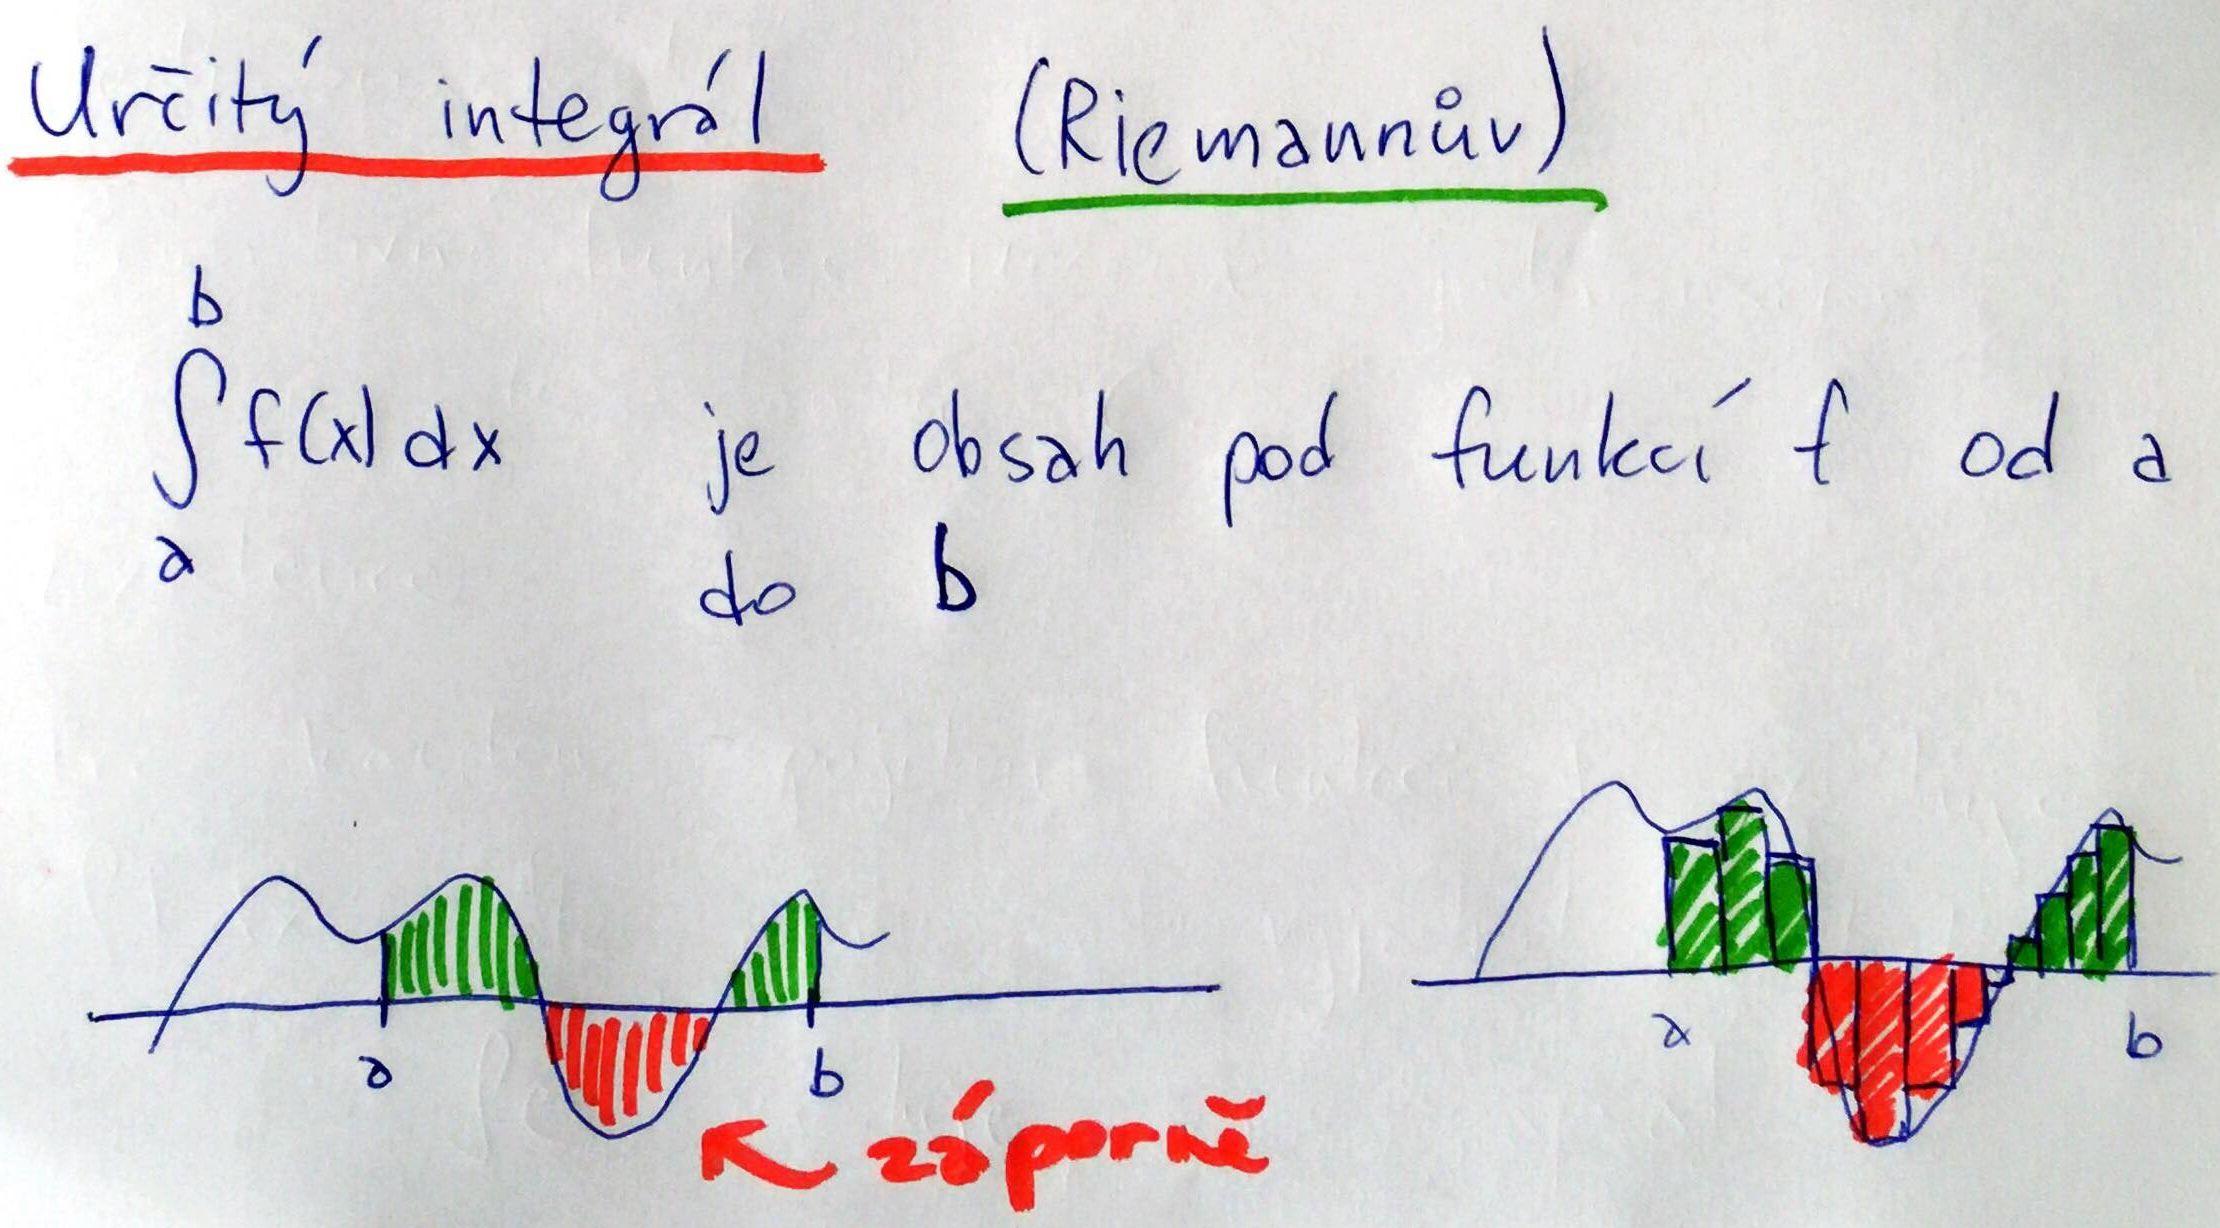 Určitý integrál (Riemannův)
b
∫ f(x) dx je obsah pod funkcí f od a
a do b
a b
záporně
a b